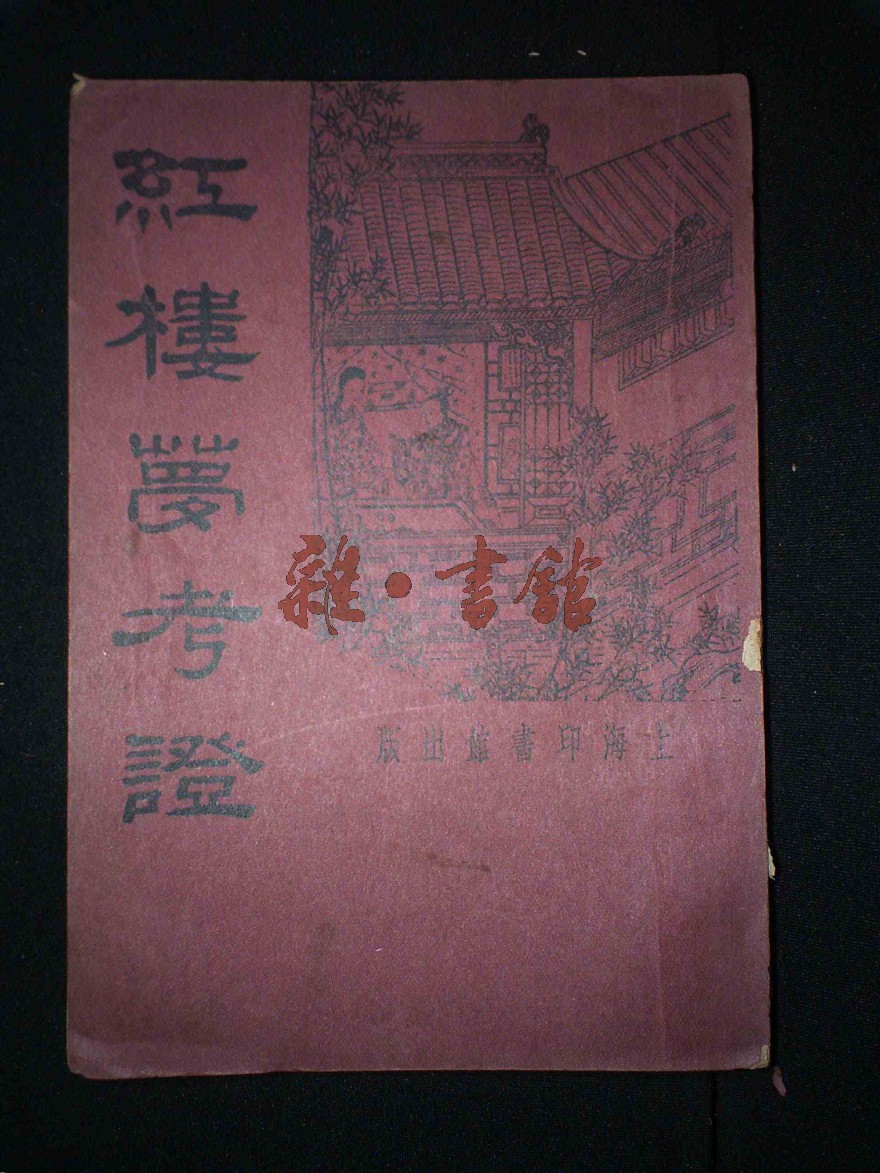 紅樓夢考證
上海印書館出版
雜·書館